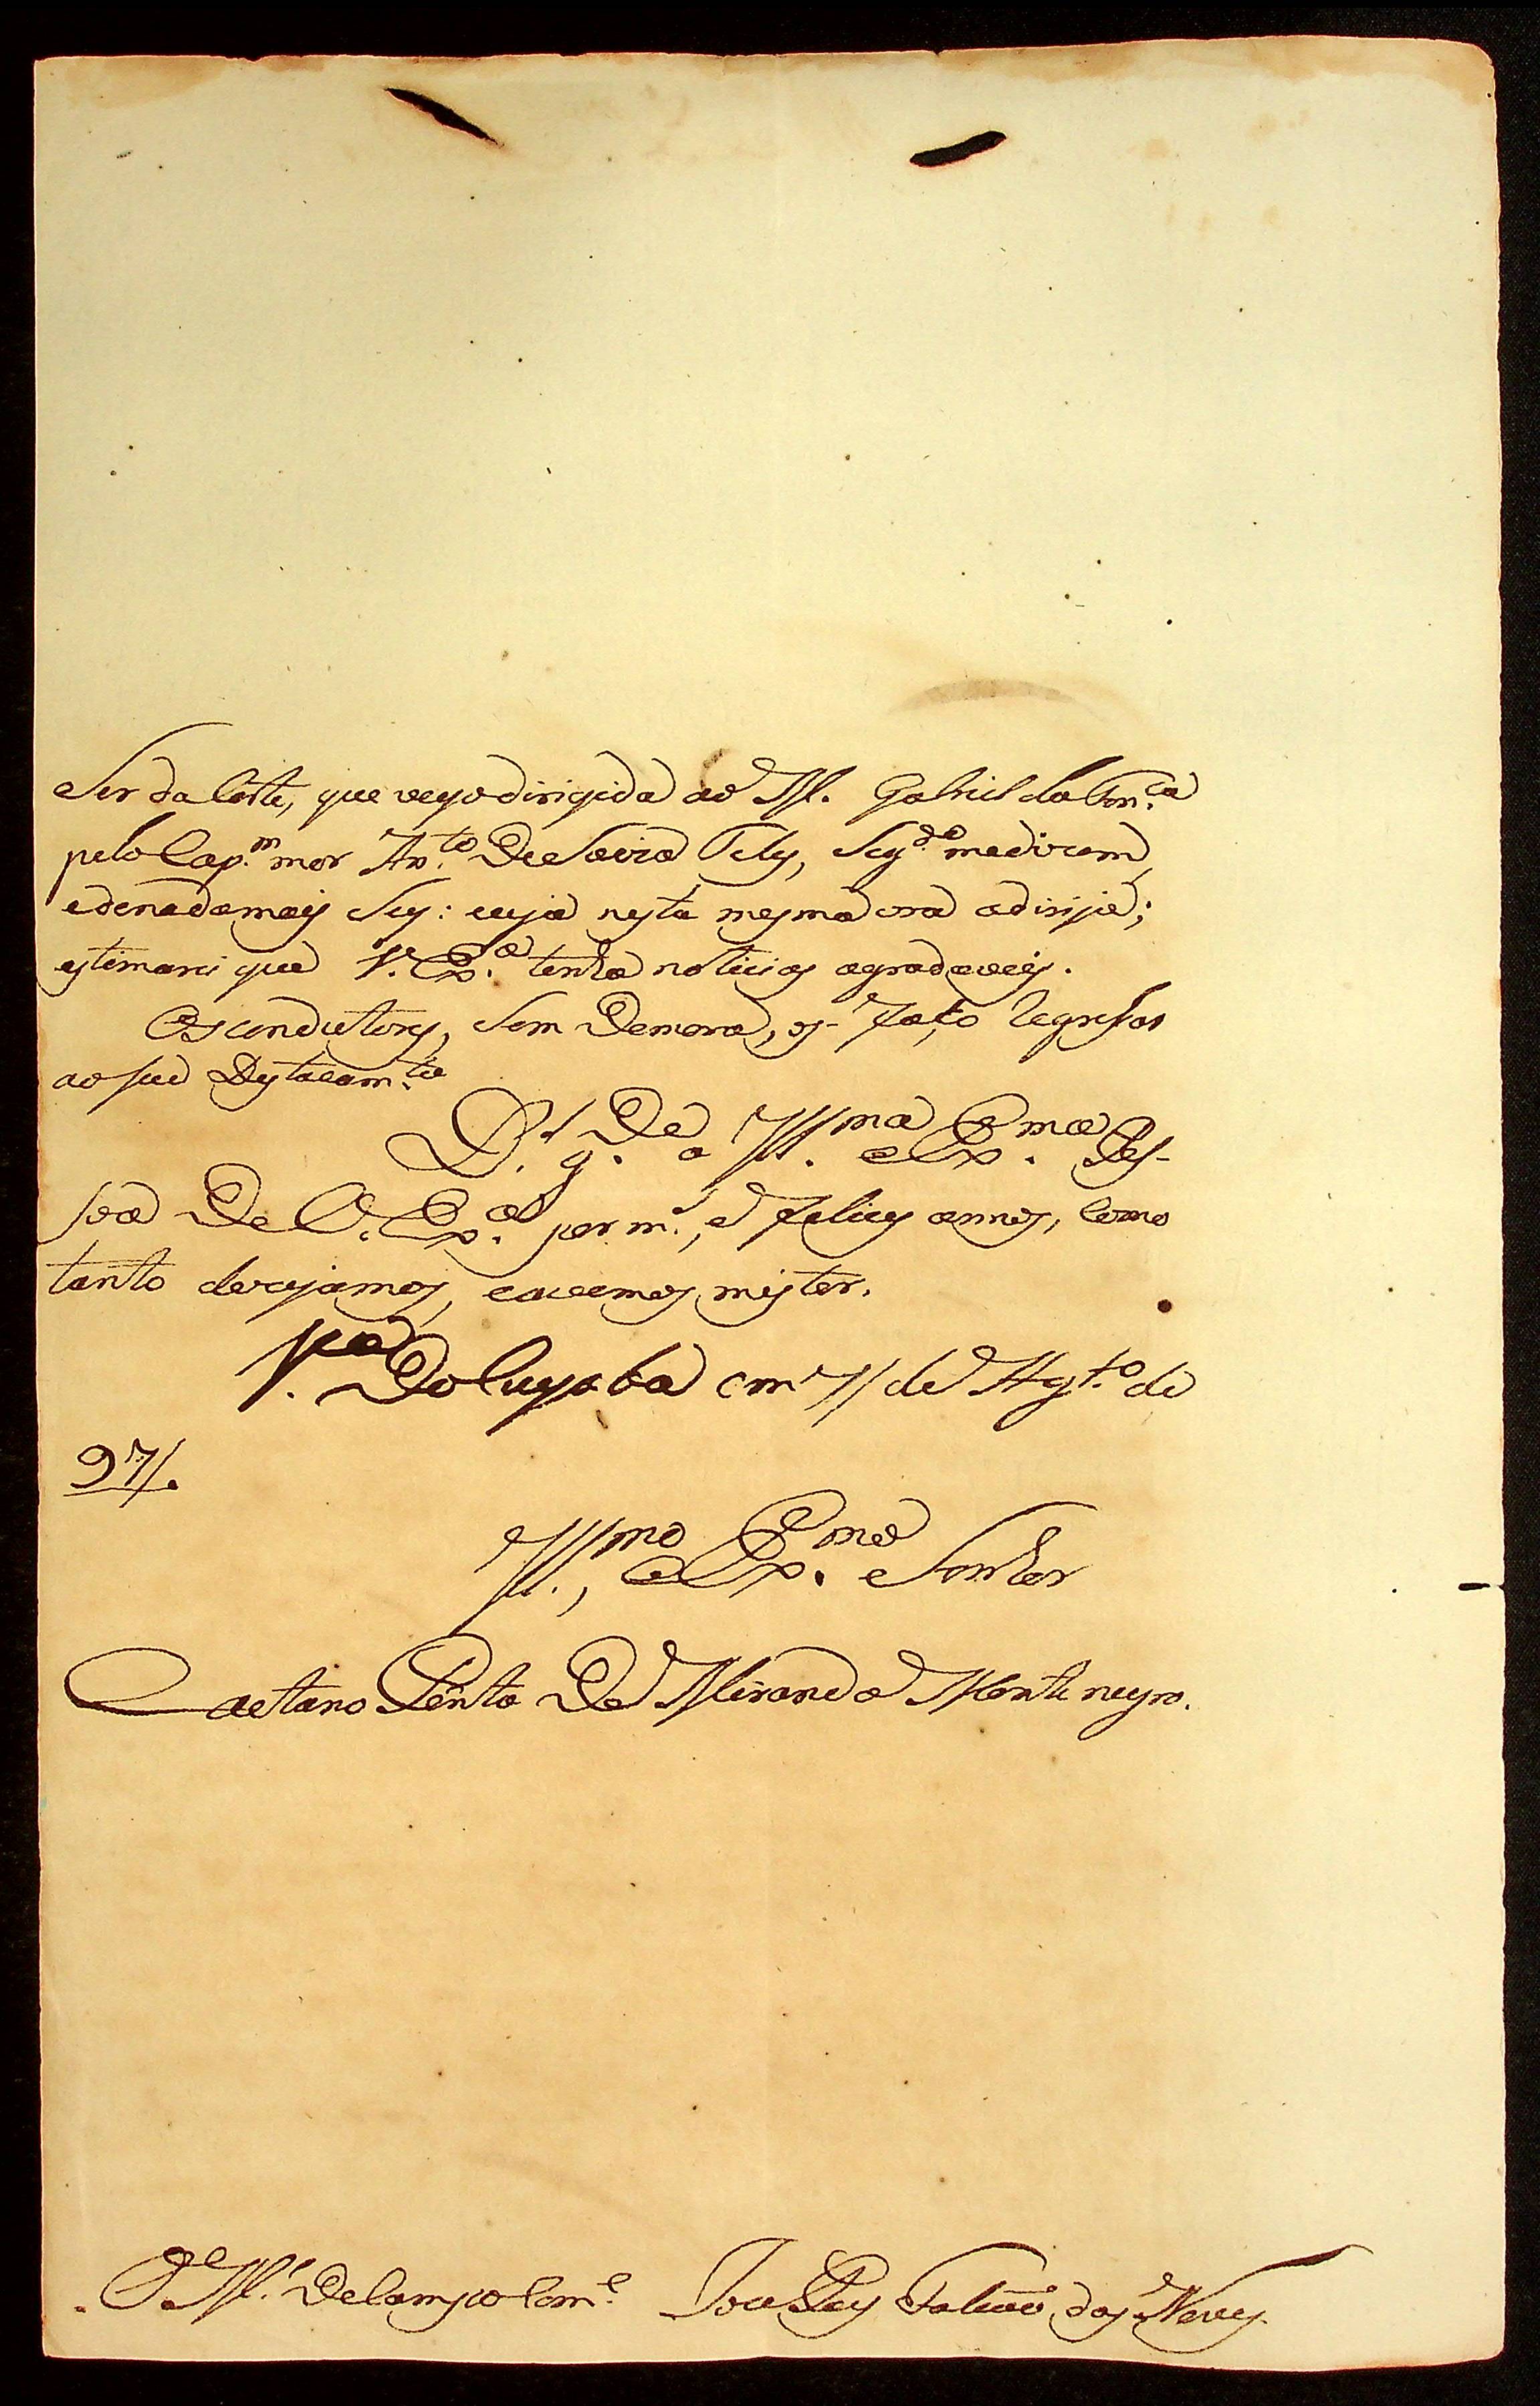 Ser da Corte, que veyo dirigida ao M. Gabriel da Fon.ca
pelo Cap.m mor An.to De Souza Tely, Seg.do me dicerem,
e de nada mays Sey: cuja nesta mesma ora a dirijo;
estimarei que V. Ex.a tenha noticias agradaveis.
Os conductores, Sem Demora, os faço regressar
ao seu Destacam.to
D.s g.De a Ill.ma e Ex.ma Pes-
soa De V. Ex.a por m.s, e Felices annos, Como
tanto dezejamos, e avemos mister.
V.a Do Cuyaba em 7 de Agt.o de
97.
Ill.mo, e Ex.mo Senhor
Caetano Pinto De Miranda Montenegro.
O M.e De Campo Com.e Joze Paes Falcaõ das Neves.